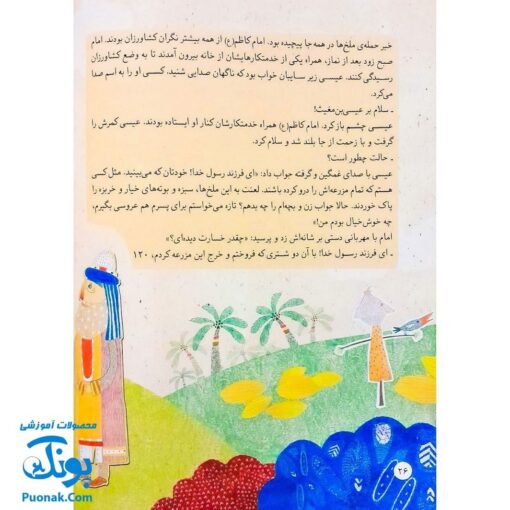 خبر حمله‌ی ملخ‌ها در همه جا پیچیده بود. امام کاظم(ع) از همه بیشتر نگران کشاورزان بودند. امام
صبح زود بعد از نماز، همراه یکی از خدمتکارهایشان از خانه بیرون آمدند تا به وضع کشاورزان
رسیدگی کنند. عیسی زیر سایبان خواب بود که ناگهان صدایی شنید، کسی او را به اسم صدا
می‌کرد.
ـ سلام بر عیسی‌بن‌مغیث!
عیسی چشم باز کرد. امام کاظم(ع) همراه خدمتکارشان کنار او ایستاده بودند. عیسی کمرش را
گرفت و با زحمت از جا بلند شد و سلام کرد.
ـ حالت چطور است؟
عیسی با صدای غمگین و گرفته جواب داد: «ای فرزند رسول خدا! خودتان که می‌بینید. مثل کسی
هستم که تمام مزرعه‌اش را درو کرده باشند. لعنت به این ملخ‌ها، سبزه و بوته‌های خیار و خربزه را
پاک خوردند. حالا جواب زن و بچه‌ام را چه بدهم؟ تازه می‌خواستم برای پسرم هم عروسی بگیرم،
چه خوش‌خیال بودم من!»
امام با مهربانی دستی بر شانه‌اش زد و پرسید: «چقدر خسارت دیده‌ای؟»
ـ ای فرزند رسول خدا! با آن دو شتری که فروختم و خرج این مزرعه کردم، ۱۲۰
۲۶
محصولات آموزشی
پونک
Puonak.Com